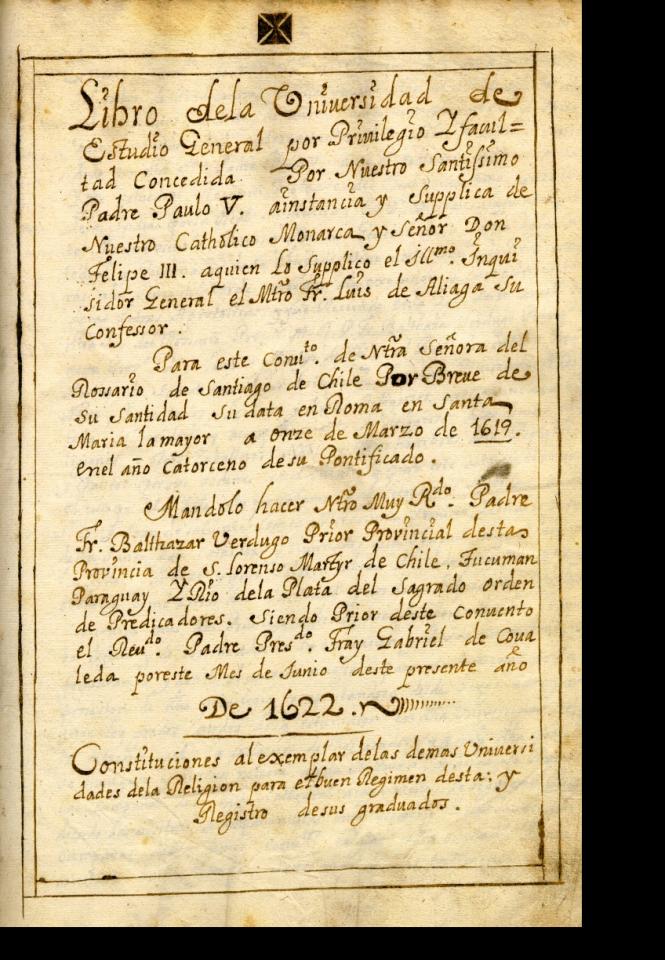 Libro dela Universidad de
Estudio General por Privilegio Y facul=
tad Concedida Por Nuestro Santissimo
Padre Paulo V. ainstancia y supplica de
Nuestro Catholico Monarca y señor Don
Felipe III. aquien Lo Supplico el Illmo. Inqui
sidor General el Mtro Fr. Luis de Aliaga su
Confessor.
Para este Convto. de Ntra Señora del
Rossario de Santiago de Chile Por Breve de
su Santidad su data en Roma en Santa
Maria la mayor a onze de Marzo de 1619.
enel año catorceno desu Pontificado.
Mandolo hacer Ntro Muy Rdo. Padre
Fr. Balthazar Verdugo Prior Provincial desta
Provincia de S. Lorenso Martyr de Chile, Tucuman
Paraguay Y Rio dela Plata del Sagrado orden
de Predicadores. siendo Prior deste Convento
el Reudo. Padre Presdo. Fray Gabriel de Coua
leda poreste Mes de Junio deste presente año
De 1622.
Constituciones al exemplar delas demas Universi
dades dela Religion para el buen Regimen desta; y
Registro desus graduados.